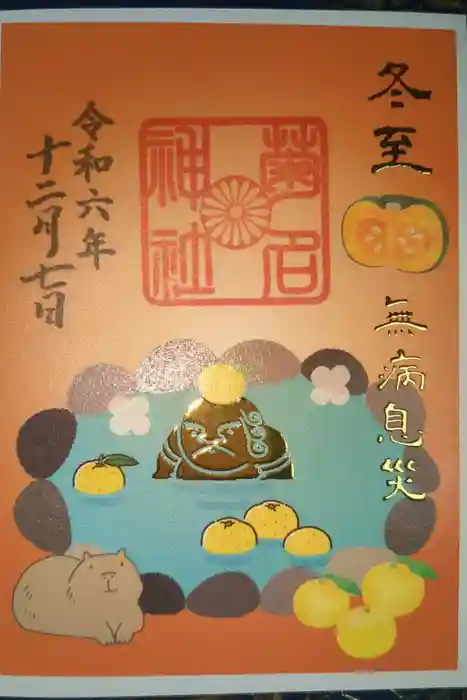 冬至
無病息災
菊名
神社
令和六年
十二月七日